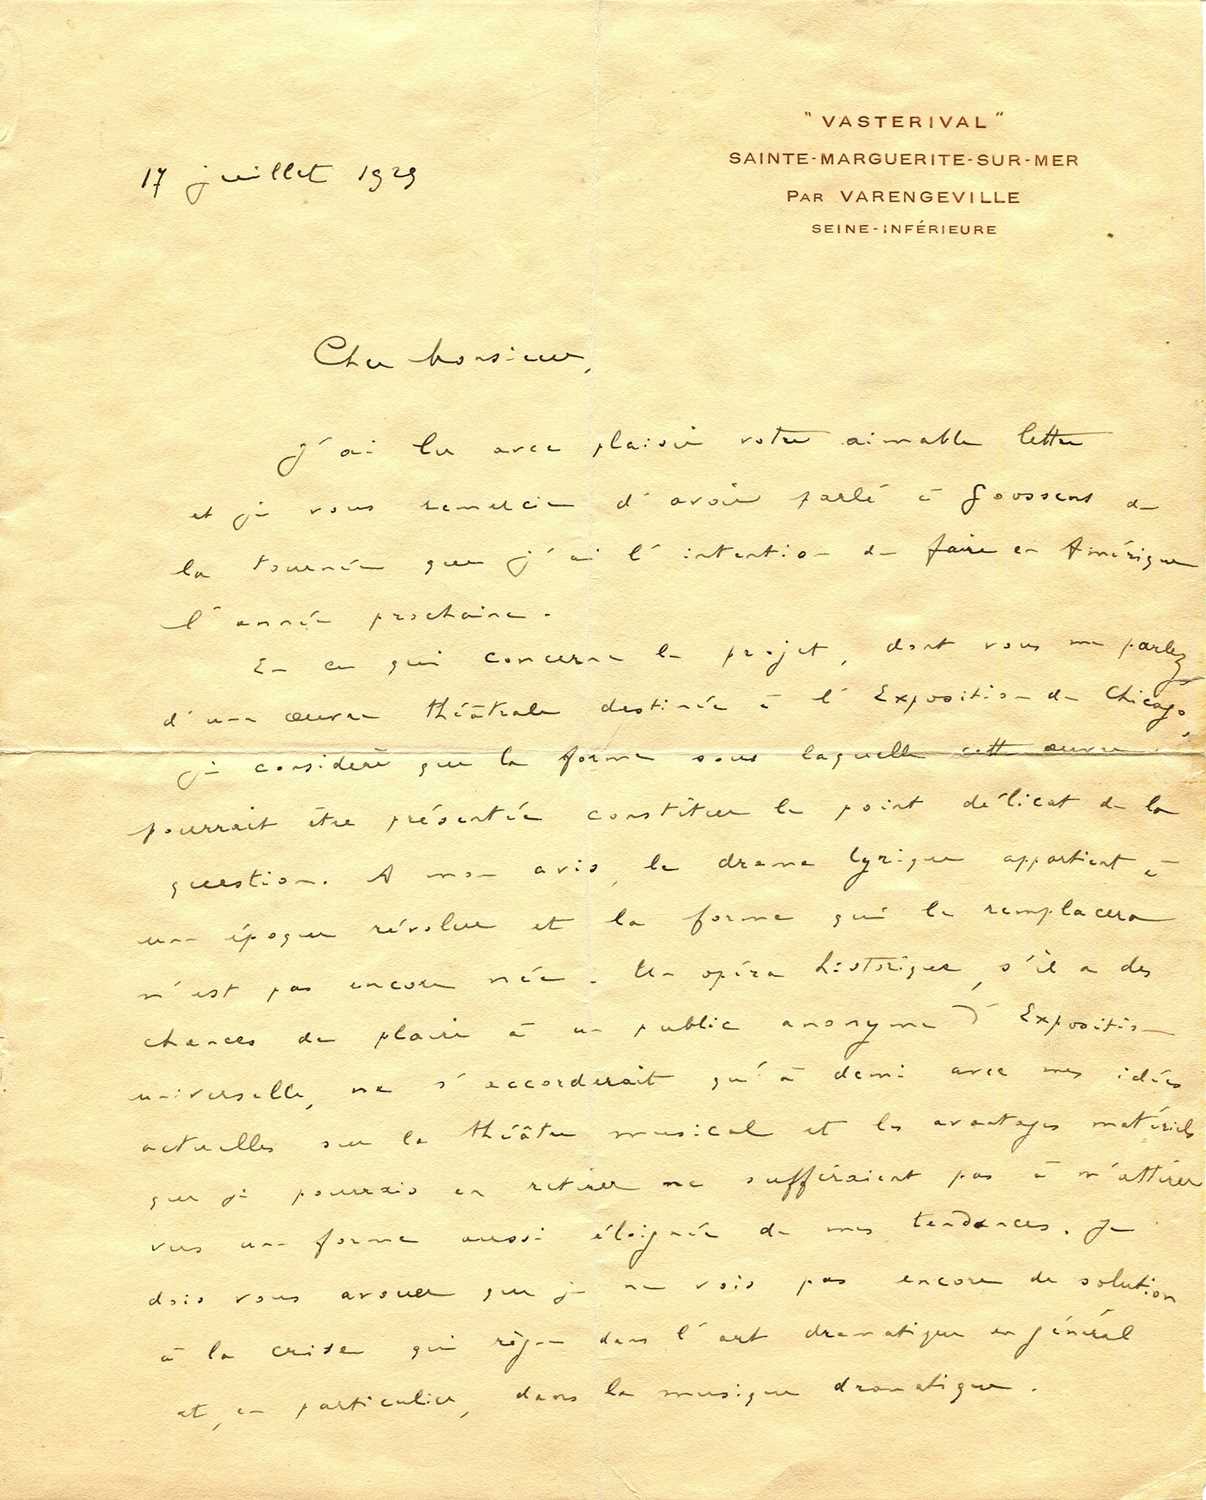 "VASTERIVAL"
SAINTE-MARGUERITE-SUR-MER
PAR VARENGEVILLE
SEINE-INFÉRIEURE
17 juillet 1929
Cher Monsieur,
J'ai lu avec plaisir votre aimable lettre
et je vous remercie d'avoir parlé à Goossens de
la tournée que j'ai l'intention de faire en Amérique
l'année prochaine.
En ce qui concerne le projet, dont vous me parlez
d'une œuvre théâtrale destinée à l'Exposition de Chicago,
je considère que la forme sous laquelle cette œuvre
pourrait être présentée constitue le point délicat de la
question. A mon avis, le drame lyrique appartient à
une époque révolue et la forme qui le remplacera
n'est pas encore née. Un opéra historique, s'il a des
chances de plaire à un public anonyme d'Exposition
universelle, ne s'accorderait qu'à demi avec mes idées
actuelles sur le théâtre musical et les avantages matériels
que je pourrais en retirer ne suffiraient pas à m'attirer
vers une forme aussi éloignée de mes tendances. Je
dois vous avouer que je ne vois pas encore de solution
à la crise qui règne dans l'art dramatique en général
et, en particulier, dans la musique dramatique.